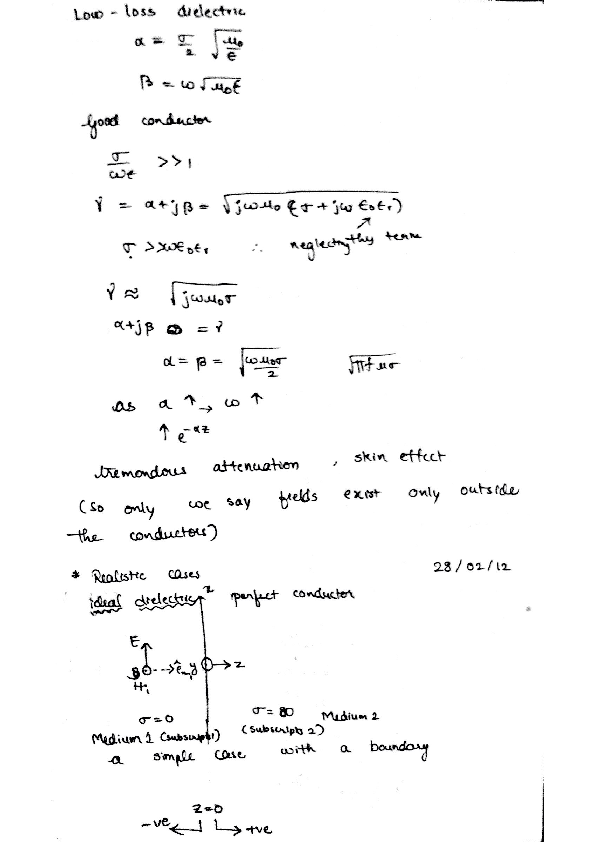 Low-loss dielectric
α = σ/2 √(μ₀/ϵ)
β = ω√μ₀ϵ
Good conductor
σ/ωϵ >>1
γ = α+jβ = √jωμ₀(σ + jω ϵ₀ϵᵣ)
σ >>ωϵ₀ϵᵣ ∴ neglecting this term
γ ≈ √jωμ₀σ
α+jβ = γ
α = β = √(ωμ₀σ/2) √πfμσ
as α ↑ → ω ↑
↑ e^-αz
tremondous attenuation , skin effect
(so only we say fields exist only outside
the conductors)
* Realistic cases 28/02/12
ideal dielectric perfect conductor
E
y z
Hᵢ
σ=0 Medium 2
Medium 1 (subscript 1) (subscript 2)
a simple case with a boundary
z=0
-ve +ve